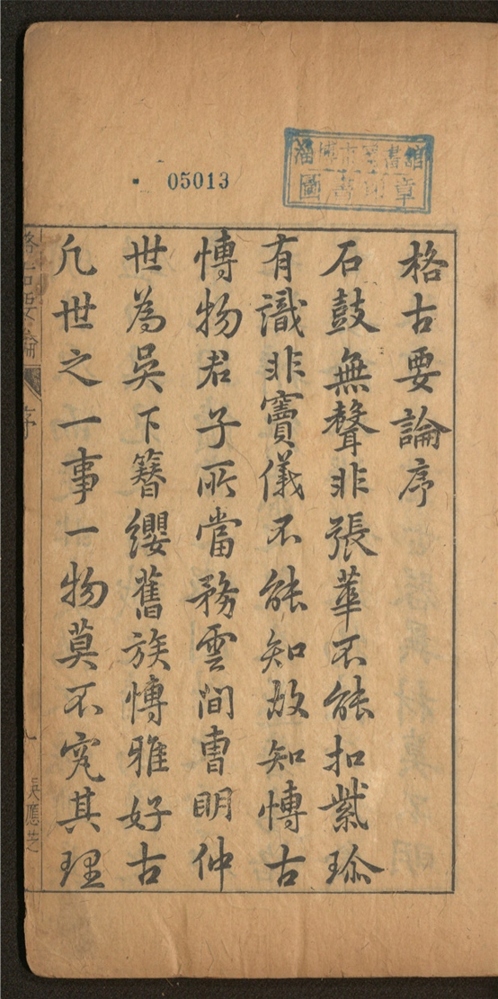 05013
圖書則章
格古要論序
石鼓無聲非張華不能扣紫瑜
有識非竇儀不能知故知博古
博物君子所當務雲間曹明仲
世為吳下簪纓舊族博雅好古
凡世之一事一物莫不究其理
格古要論
序
吳應芝